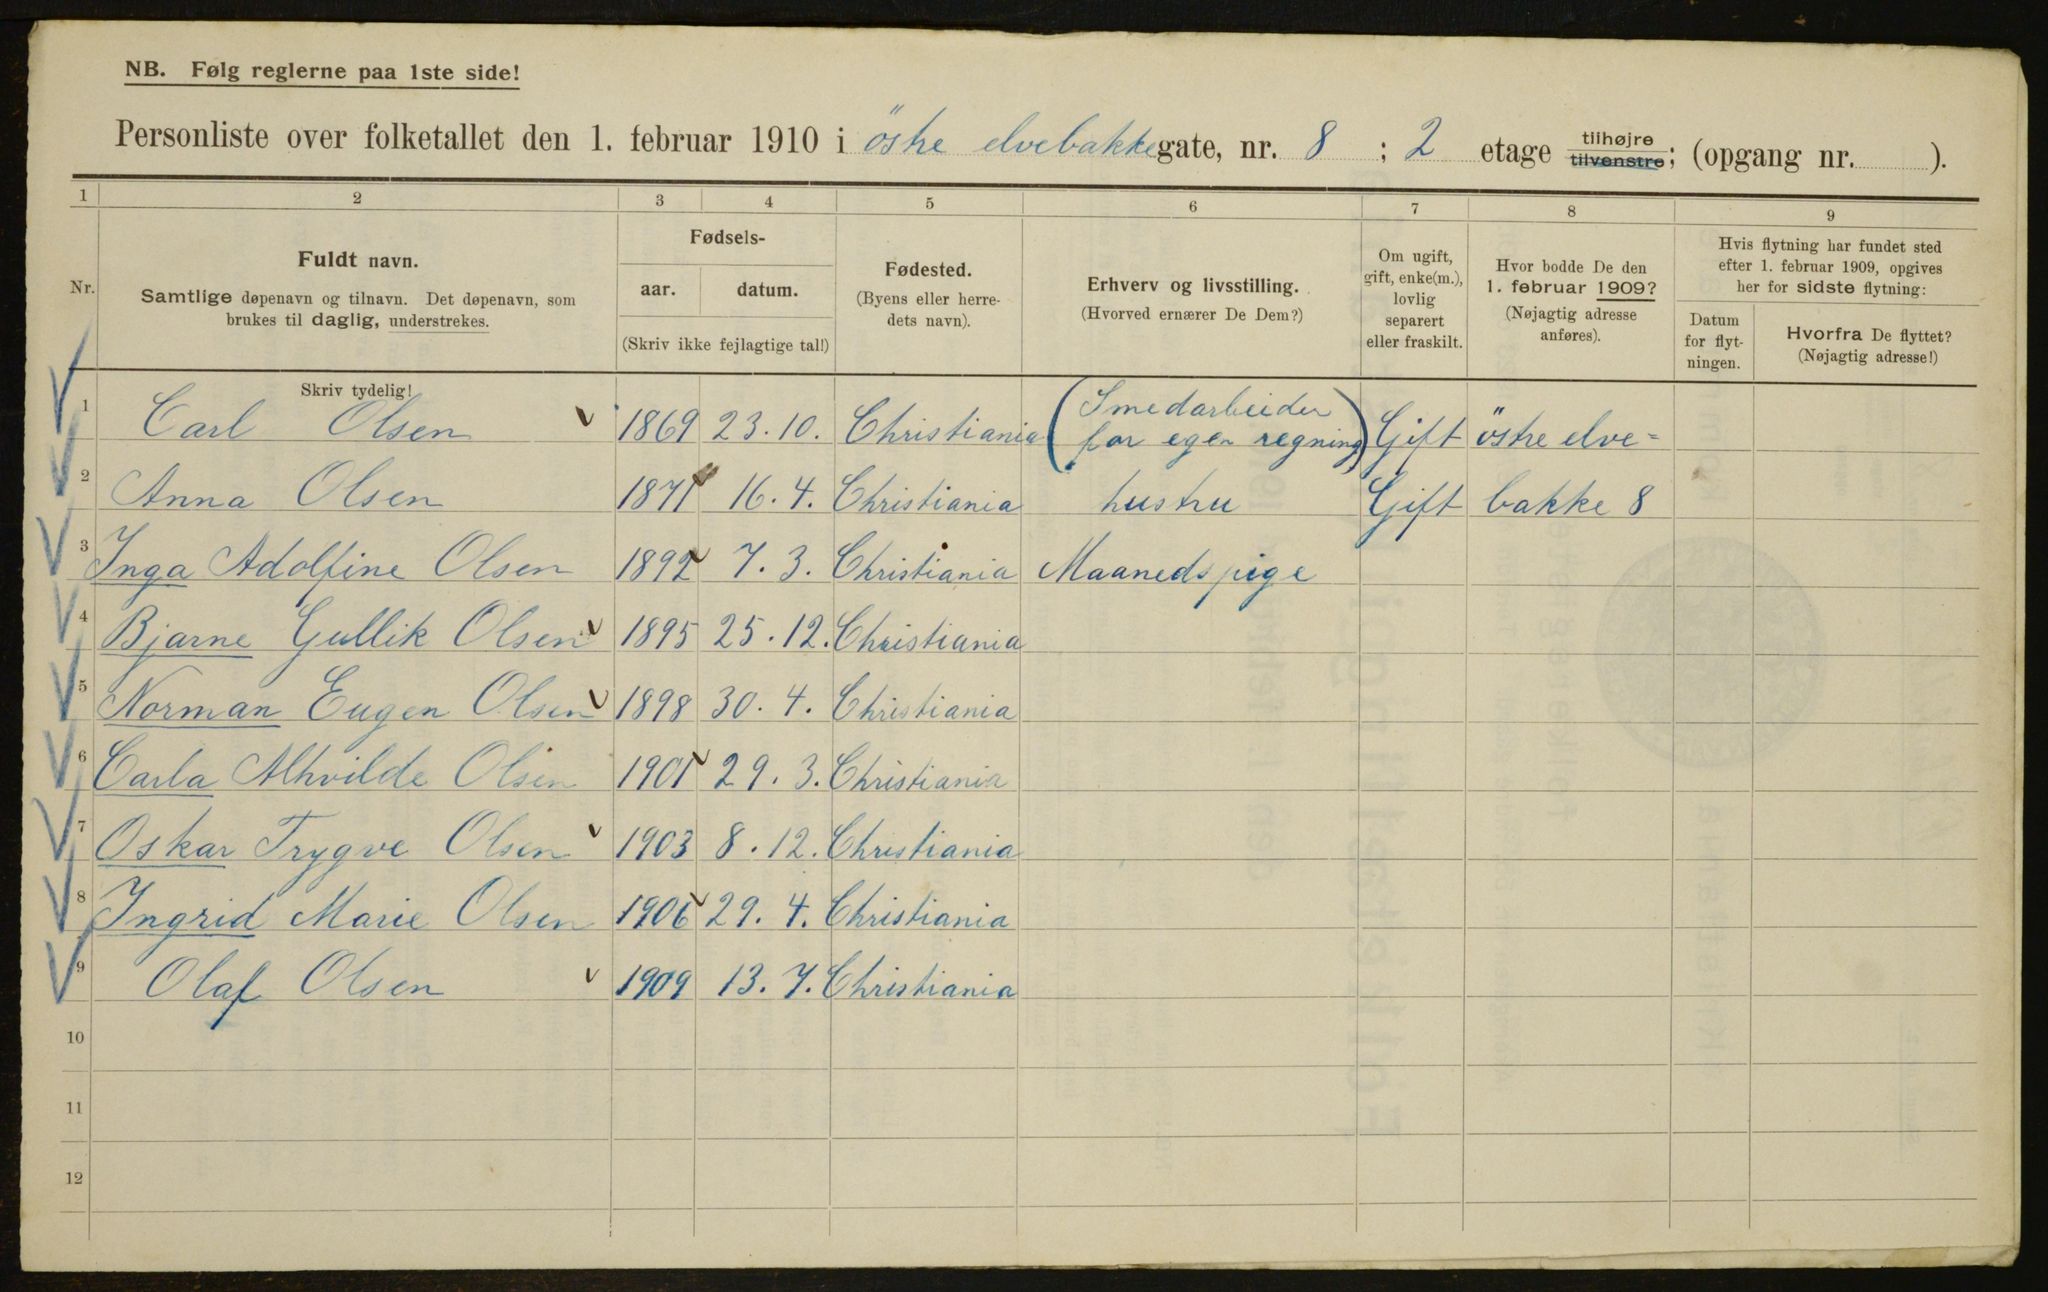 NB. Følg reglerne paa 1ste side!
Personliste over folketallet den 1. februar 1910 i östre elvebakkegate, nr. 8 ; 2 etage tilhøjre tilvenstre; (opgang nr. ).
1 2 3 4 5 6 7 8 9
Nr.
Fuldt navn.
Samtlige døpenavn og tilnavn. Det døpenavn, som
brukes til daglig, understrekes.
Skriv tydelig!
Fødsels-
aar. datum.
(Skriv ikke fejlagtige tal!)
Fødested.
(Byens eller herre-
dets navn).
Erhverv og livsstilling.
(Hvorved ernærer De Dem?)
Om ugift,
gift, enke(m.),
lovlig
separert
eller fraskilt.
Hvor bodde De den
1. februar 1909?
(Nøjagtig adresse
anføres).
Hvis flytning har fundet sted
efter 1. februar 1909, opgives
her for sidste flytning:
Datum
for flyt-
ningen.
Hvorfra De flyttet?
(Nøjagtig adresse!)
1 Carl Olsen 1869 23.10. Christiania (Smedarbeider for egen regning) Gift östre elve=
2 Anna Olsen 1871 16.4. Christiania hustru Gift bakke 8
3 Inga Adolfine Olsen 1892 7.3. Christiania Maanedspige
4 Bjarne Gullik Olsen 1895 25.12. Christiania
5 Norman Eugen Olsen 1898 30.4. Christiania
6 Carla Alhvilde Olsen 1901 29.3. Christiania
7 Oskar Trygve Olsen 1903 8.12. Christiania
8 Ingrid Marie Olsen 1906 29.4. Christiania
9 Olaf Olsen 1909 13.7. Christiania
10
11
12